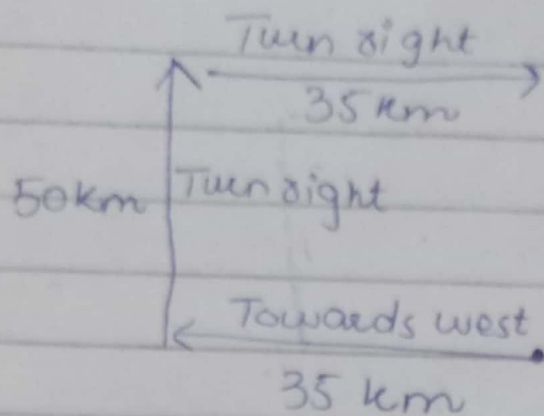 Turn right
35 km
50km
Turn right
Towards west
35 km